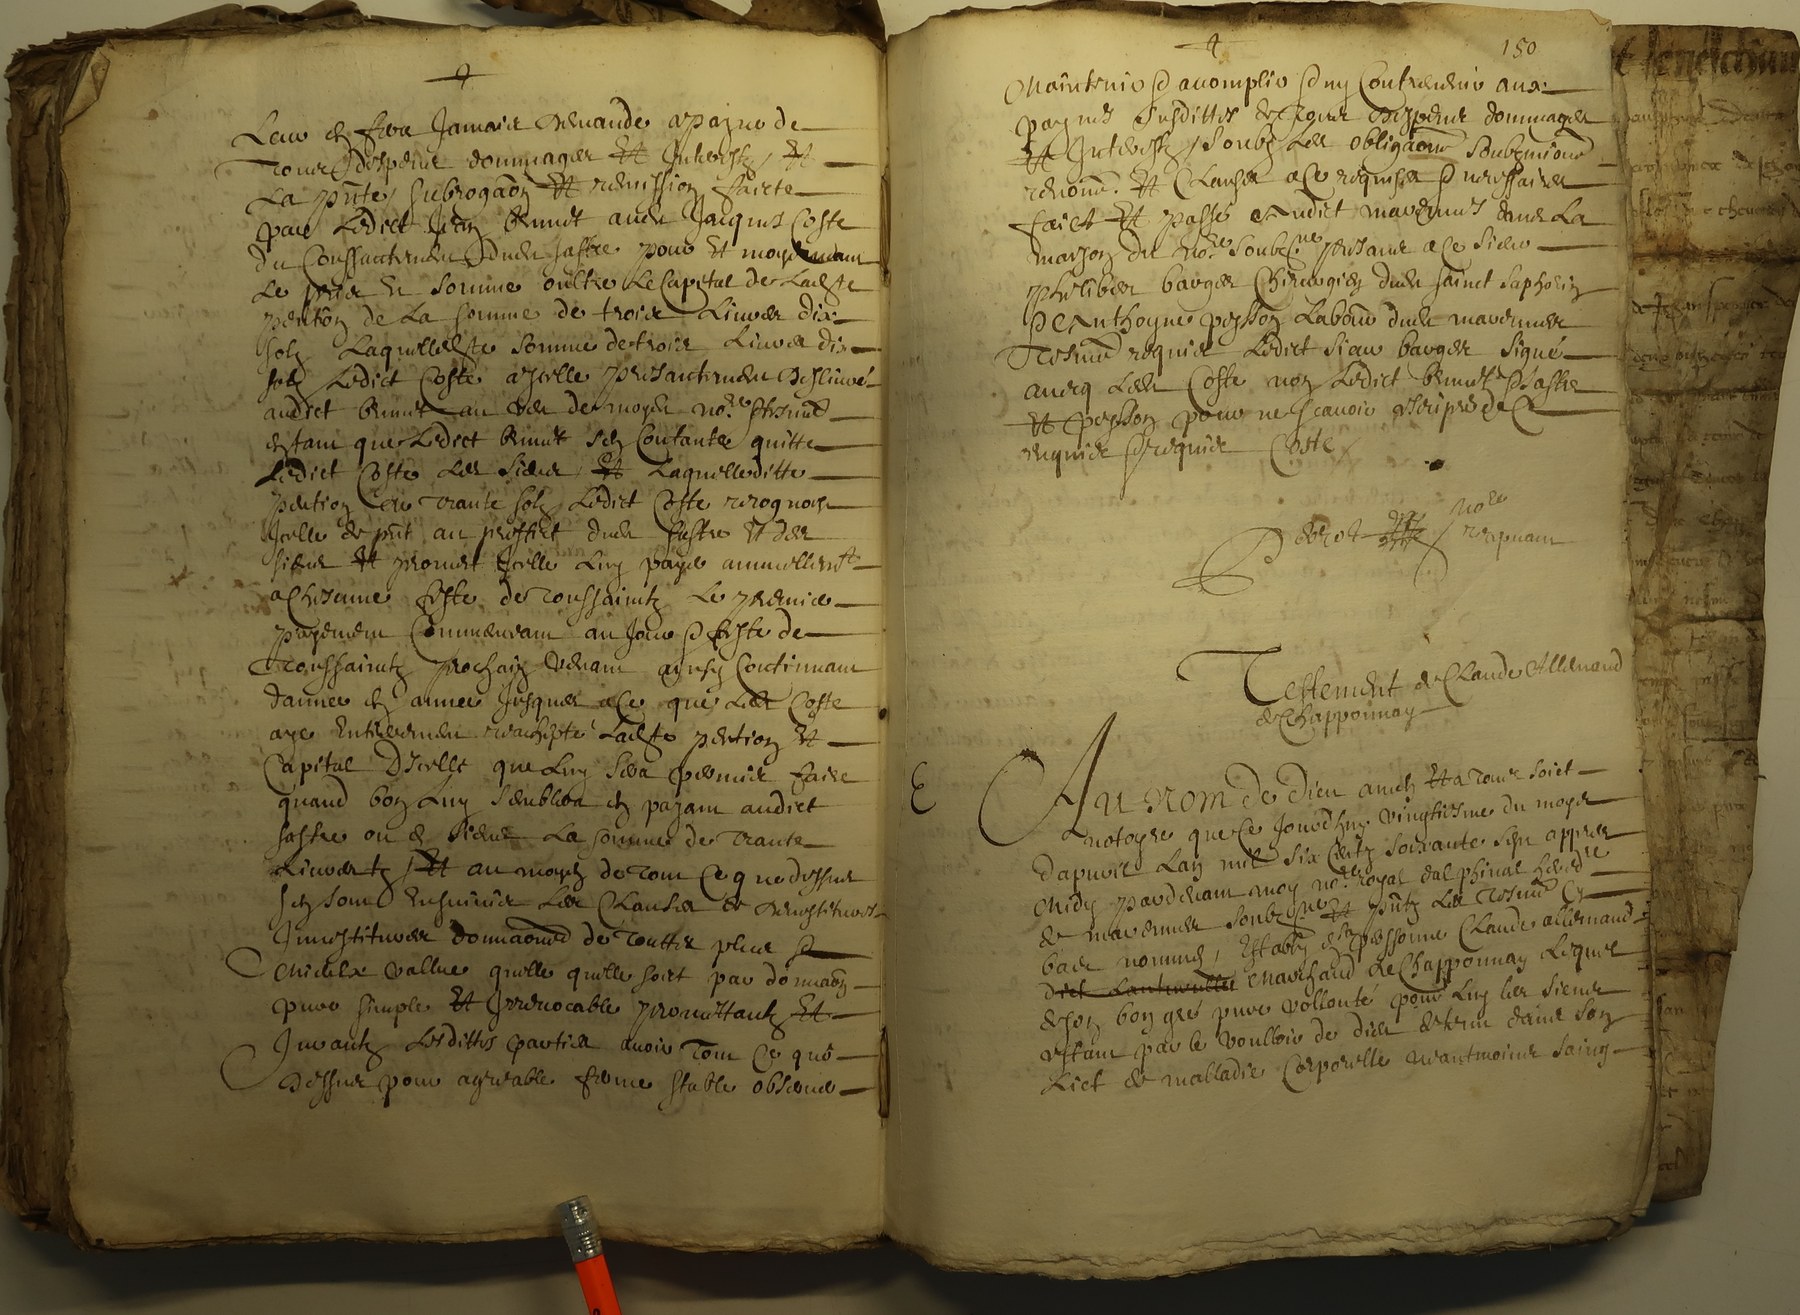 Leur en sera Jamais demandé a payne de
tous despens dommages et Interestz, et
La pnte subrogaõn et remission faicte
par Ledict Jean benoit audit Jacques Coste
du Consantement dudit sastre pour et moyenant
Le pris et somme oultre Le Capital de Ladste
pention de La somme de trois Liures dix
solz Laquelle dste somme de trois Liures dix
solz Ledict Coste a Icelle presantement deliuré
audict benoit au veu de moy dit nore et tesmoins
en tant que Ledict benoit s'en Contante quitte
Ledict Coste Les siens, et Laquelleditte
pention de trante solz Ledict Coste recognoist
Icelle de pnt au proffict dudit sastre et des
siens et promet Icelle Luy payer annuellemt
a chescune feste de toussainctz Le premier
payement Commencant au Jour et feste de
toussainctz prochain venant ainsy Continuant
dannee en annee Jusques a ce que Ledt Coste
aye Entierement rachepté Ladste pention et
Capital d'Icelle que Luy sera permis faire
quand bon Luy semblera en payant audict
sastre ou es siens La somme de trante
Liures tz et au moyen de tout Ce que dessus
s'en sont Ensuiuis Les Clauses de deuestitures
Inuestitures donnaõns de touttes plus et
Mieulx vallue quelle quelle soict par donnaõn
pure simple et Irreuocable promettantz et
Jurantz Lesdittes parties auoir tout Ce que
dessus pour agreable ferme stable obseruer
150
Maintenir et accomplir et ny Contreuenir aux
paynes susdittes de tous despens dommages
et Interestz soubz Les obligaõns soubzmions
renons et Clauses a ce requises et necessaires
faict et passé audict marennes dans La
maison du nore soubzne presans a ce sieur
philiber barges Chirurgien dudit sainct saphorin
et Anthoyne peysson Labour dudit marennes
tesmins requis Ledict sieur barges signé
auecq Ledt Coste non Ledict benoit et sastre
et peysson pour ne scauoir escripre de ce
enquis et requis Coste
nore
recepuant
Testement de Claude Allemand
de Chapponnay
Au nom de dieu amen et a tous soict
notoyre que Ce Jourdhuy vingtiesme du moys
dapuril Lan mil six Centz soixante sept appres
Midy pardeuant moy nore royal dalphinal heredre
de marennes soubzne et pntz Les tesmins Cy
bas nommes, Estably en sa personne Claude allemand
marchand de Chapponnay Lequel
de son bon gré pure vollonté pour Luy les siens
estant par le voulloir de dieu detenu dans son
Lict de malladie Corporelle neantmoins saing